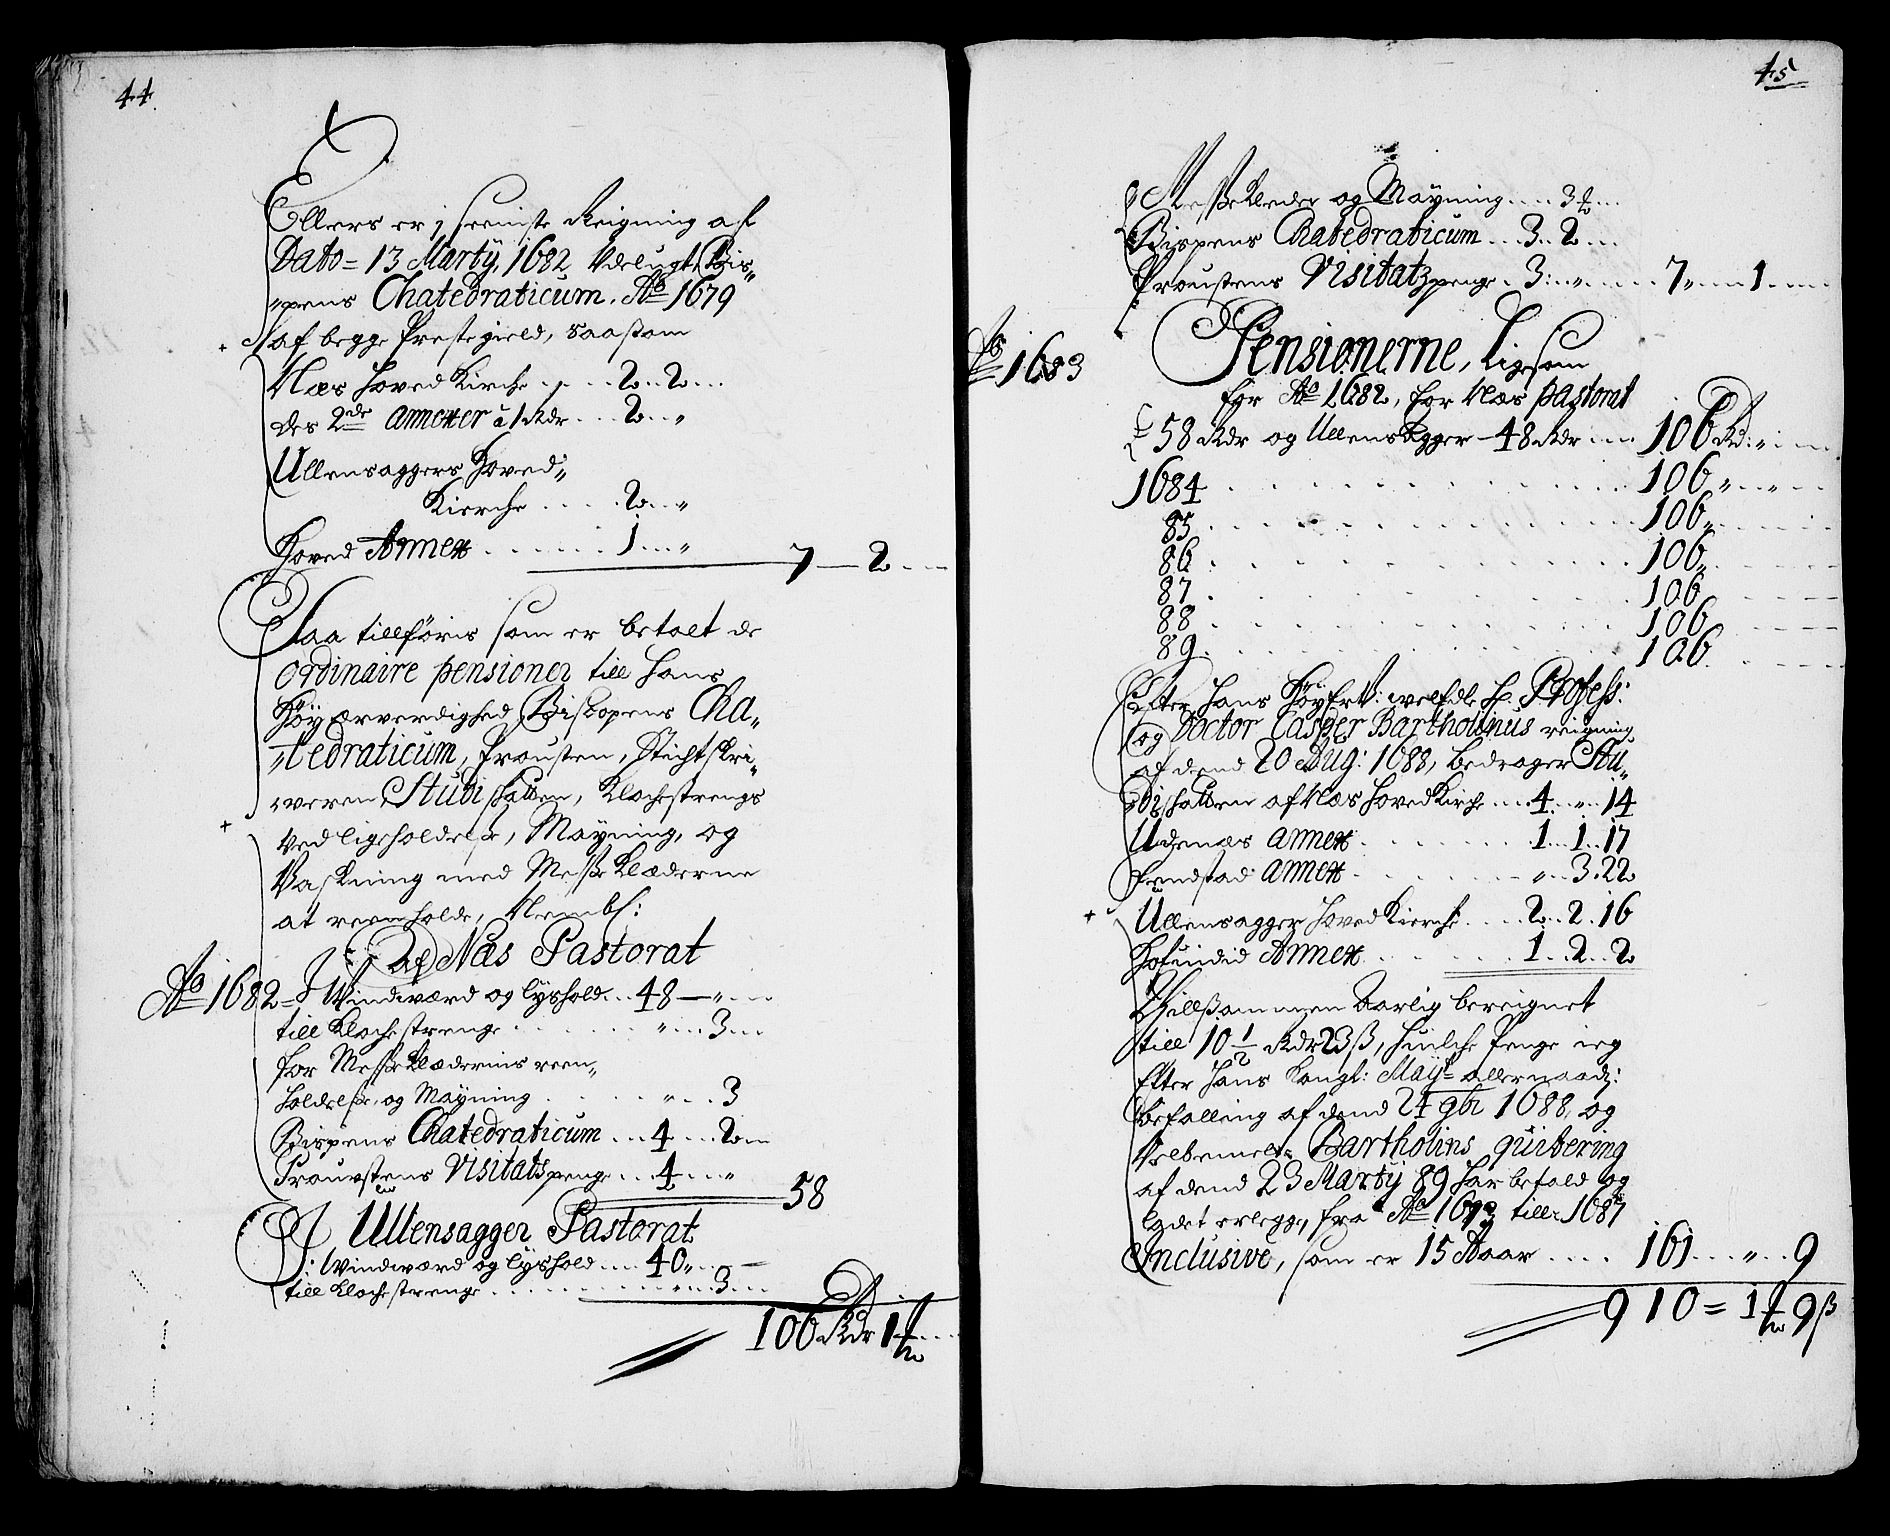 44
Ellers er j seeniste Reigning af
Dato = 13 Martÿ, 1682 Vdelugt, Bis„
„pens Chatedraticum. Ao 1679
af begge Prestegield, saasom
Næs Hoved Kirche . . . . 2 . . 2 . . .
des 2de annexer à 1 Rdr . . . 2 . . „
Ullensaggers Hoved„
Kierche . . . . . 2 . . „
Hoved Annex . . . . . . . 1 . . . „ 7 — 2 . . .
Saa tillføris som er betalt de
ordinaire pensioner till Hans
Høÿærverdighed Biscopens Cha„
„tedraticum, Prousten, Stichtskri„
„veren, Studiskatten, Klochestrengs
vedligeholdelse, Maÿning, og
Vaskning med Messe Klæderne
at reenholde, Nembl:
Af Næs Pastorat
Ao 1682 = J Windeværd og lÿshold . . 48 — „ . . .
till Klochestrenge . . . . . . . „ . . . 3 . . .
for Messeklædernis reen„
holdelse, og Maÿning . . . . . . „ . . . 3
Bispens Chatedraticum . . . 4 . . . 2 . . .
Prouvstens Visitatspenge . . . 4 . . . „ 58
Af Ullensagger Pastorat
J: Windeværd og lÿshold . . . . 40 „ . . . —
till Klochestrenge . . . . . . . . . . „ . . . 3 . . .
106 Rdr 1 1/2 . . .
45
Messeklæder og Maÿning . . . . 3 1/2 . . .
Bispens Chatedraticum . . . 3 . . 2 . . .
Proustens Visitatzpenge . 3 : . . „ . . . . . 7 „ . . . 1 . . . .
Ao 1683 Pensionerne, Ligesom
for Ao 1682, for Næs pastorat
58 Rdr og Ullensagger 48 Rdr . . . 106 Rd: „ . . .
1684 . . . . . . . . . . 106 „ . . . „ . . .
85 . . . . . . . . . . 106 „ . . .
86 . . . . . . . . . . 106 „ . . .
87 . . . . . . . . . . 106 . . .
88 . . . . . . . . . . 106 . . .
89 . . . . . . . . . . 106 . . .
Efter Hans Høÿerv: welEdle H. Profess:
og Doctor Casper Bartholinus reigning
af dend 20 Aug: 1688, bedrager Stu„
„diskatten af Næs Hoved Kirche . . . . 4 . . „ . . 14
Udenæs annex . . . . . . . . 1 . . . 1 . . 17
Fendstad annex . . . . . . . . „ . . . 3 . 22
Ullensagger Hoved Kierche . . . . 2 . . 2 . 16
Hofuindid Annex . . . . . . . . 1 . . 2 . . 2
Tillsammen Aarlig bereignet
till 10 1/2 Rdr 23 ß, Huilche Penge ieg
Efter Hans Kongl: Maÿts allernaadi:
befalling af dend 24 9br 1688, og
Velbemelte Bartholins qvitering
af dend 23 Martÿ 89 Har betald og
ladet erlegge, fra Ao 1673 till 1687
Inclusive, som er 15 Aar . . . . 161 . . . „ . . 9
910 = 1 1/2 9 ß